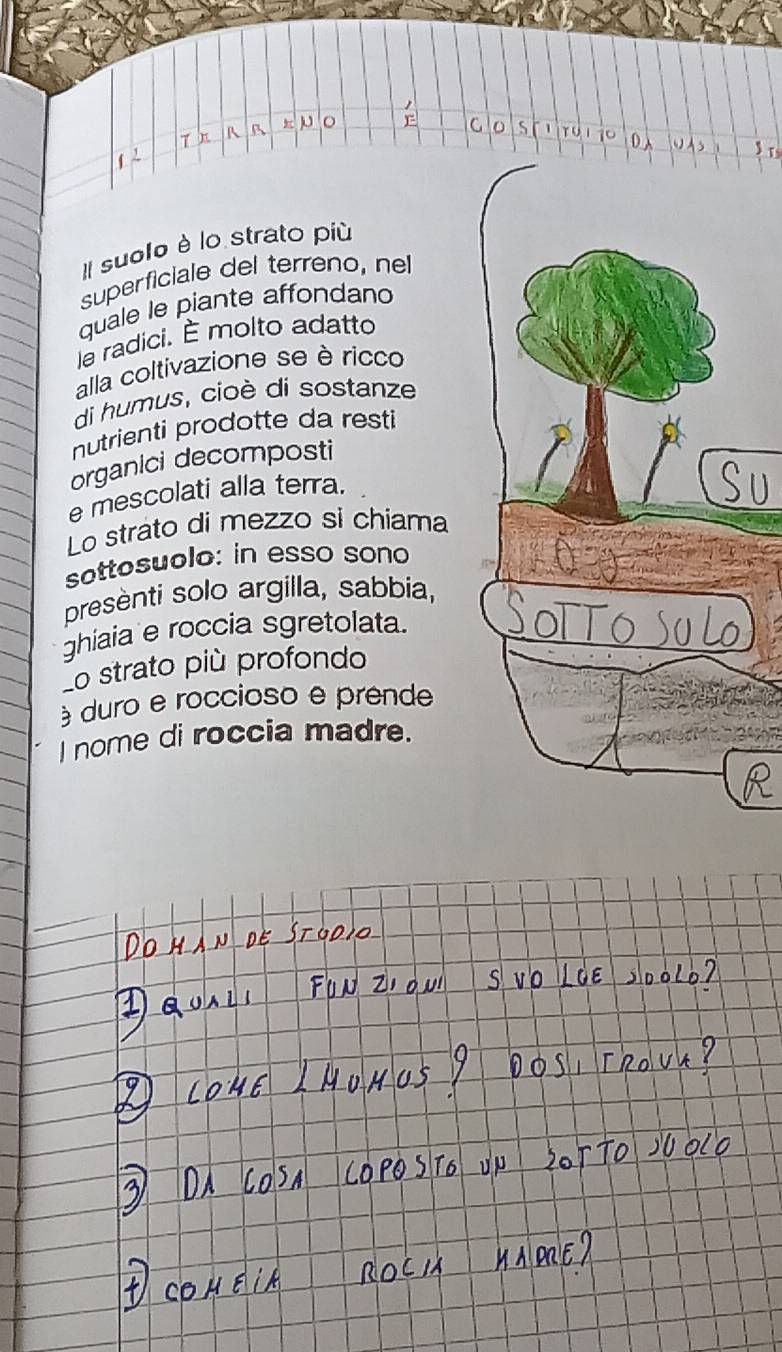 IL TERRENO É COSTITUITO DA
Il suolo è lo strato più
superficiale del terreno, nel
quale le piante affondano
le radici. È molto adatto
alla coltivazione se è ricco
di humus, cioè di sostanze
nutrienti prodotte da resti
organici decomposti
e mescolati alla terra.
Lo strato di mezzo si chiama
sottosuolo: in esso sono
presenti solo argilla, sabbia,
ghiaia e roccia sgretolata.
Lo strato più profondo
è duro e roccioso e prende
l nome di roccia madre.
SU
SOTTO SULO
R
DOMAN DE STUDIO
1) QUALI FUNZIONI SVOLGE SUOLO?
2) COME LHUMUS? DOSI TROVA?
3) DA COSA COPOSTO UN SOTTO SUOLO
4) COMEIA ROCIA MADRE?